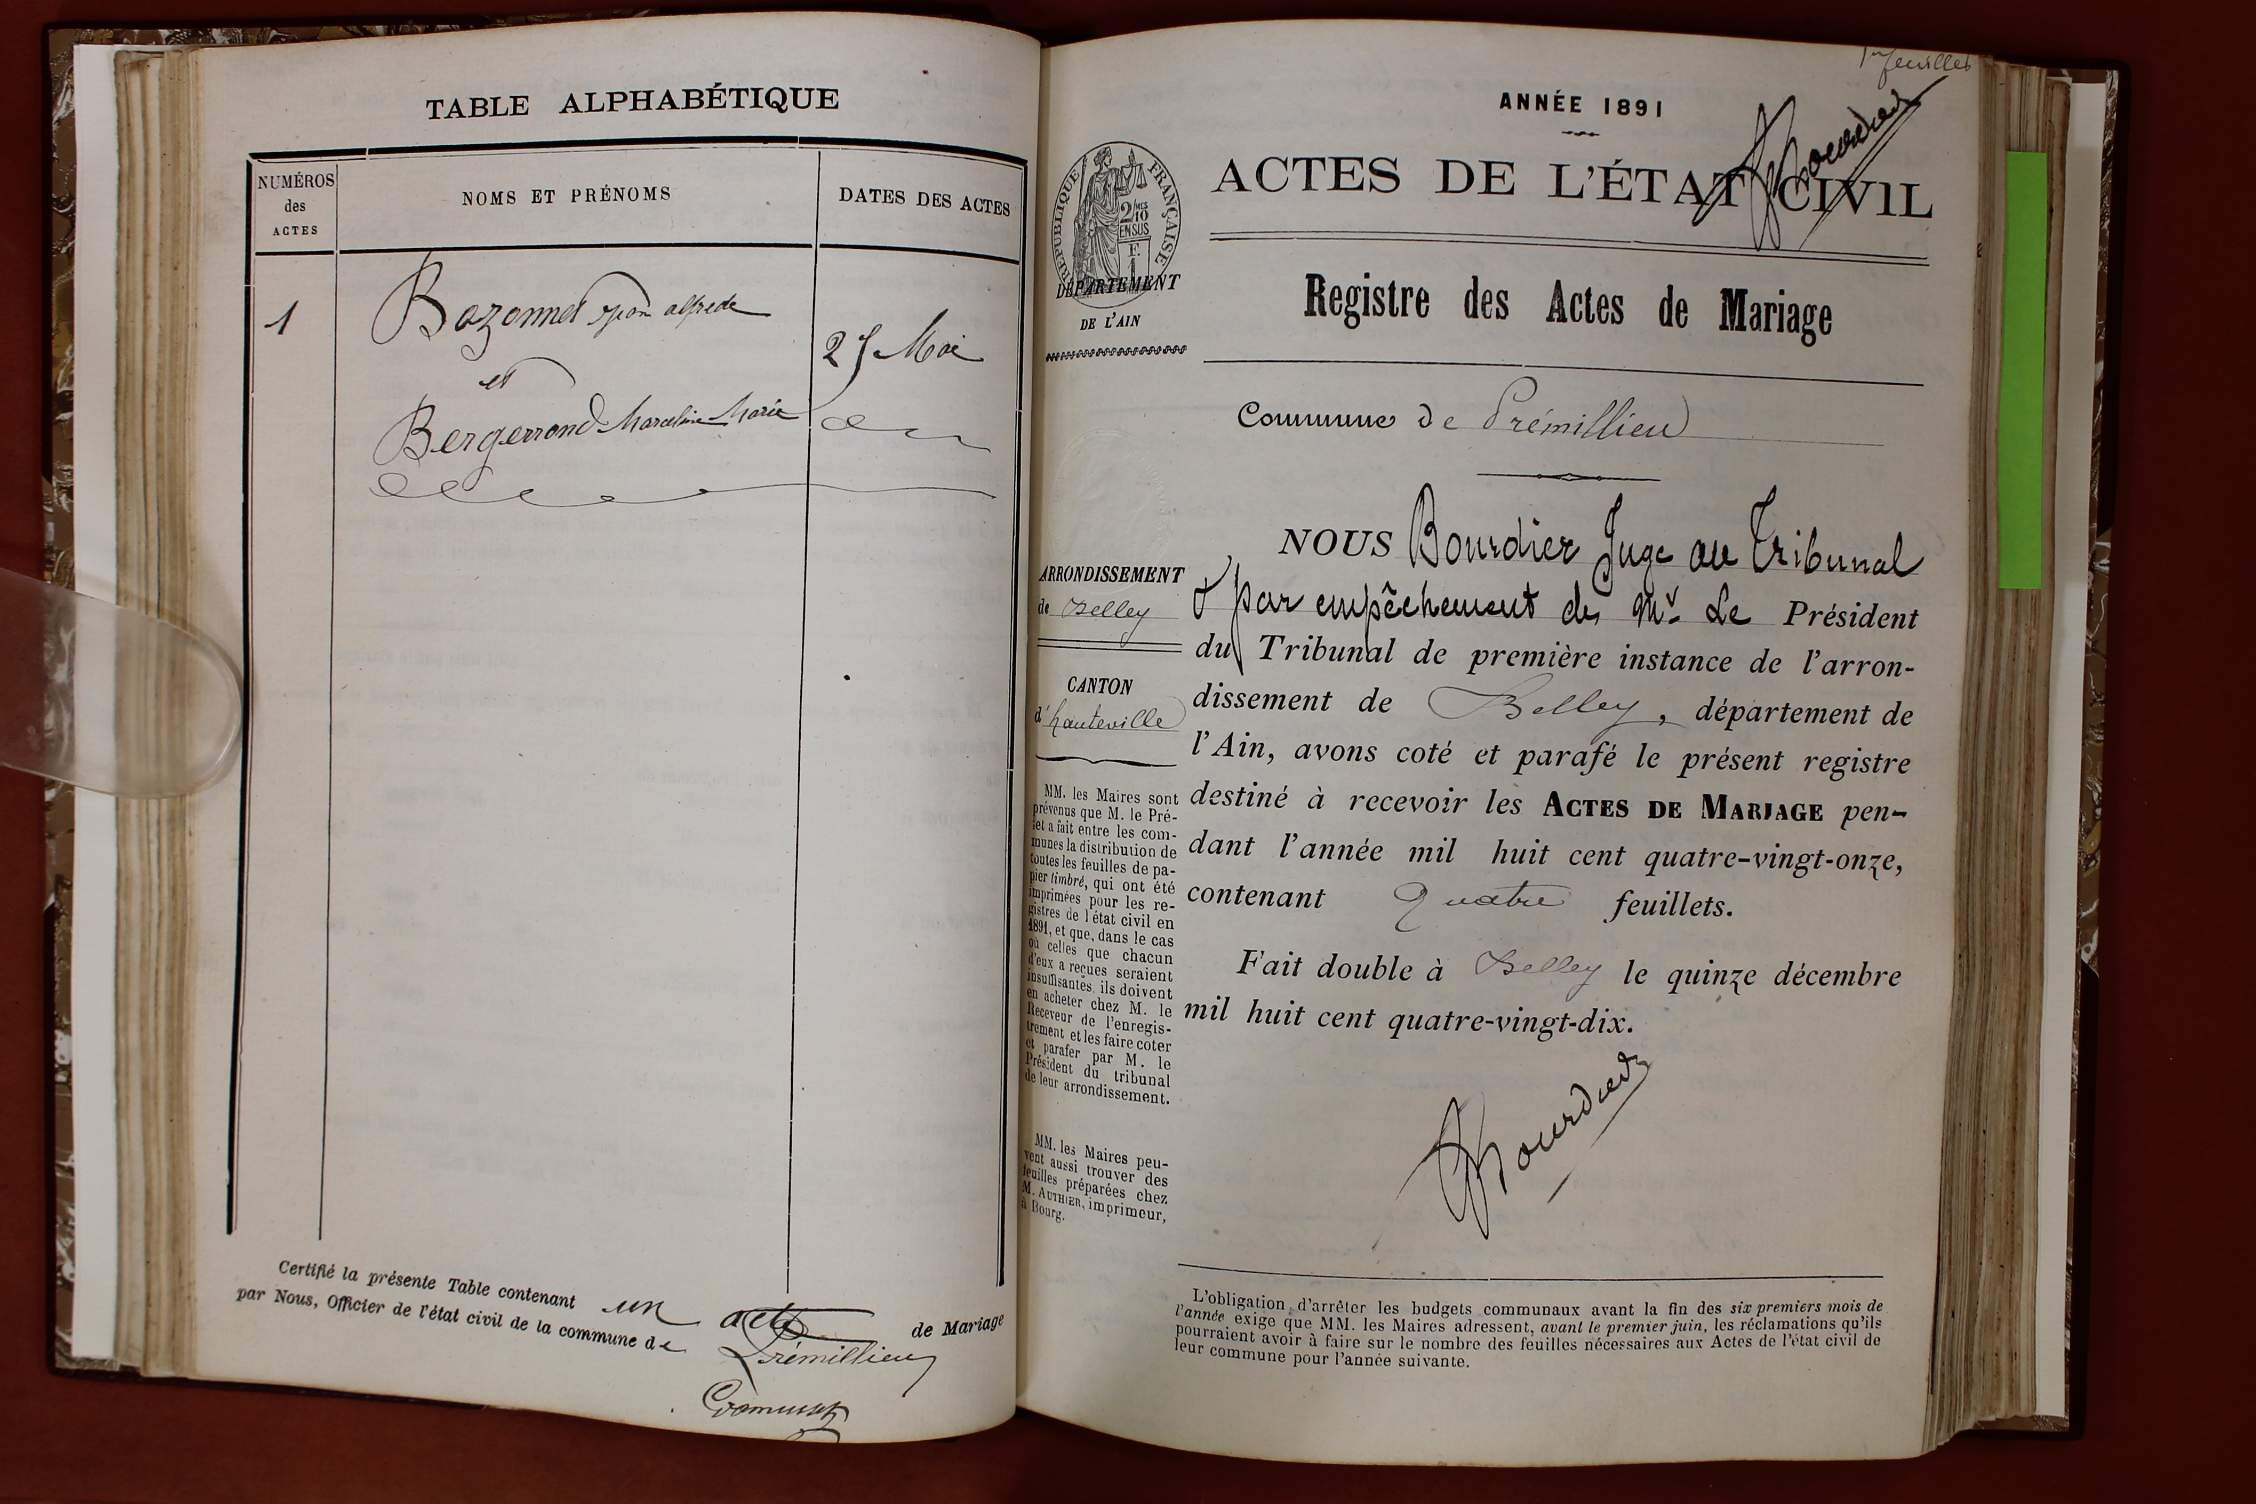 TABLE ALPHABÉTIQUE
NUMÉROS
des
ACTES
NOMS ET PRÉNOMS
DATES DES ACTES
1
Bozonnet
alfrede
Mai
et
Bergerrond Marceline Marie
Certifié la présente Table contenant un acte de Mariage
par Nous, Officier de l'état civil de la commune de Prémillieu
feuillet
ANNÉE 1891
Bourdier
ACTES DE L'ÉTAT CIVIL
RÉPUBLIQUE FRANÇAISE
2/10 MES
EN SUS
F.
1
DÉPARTEMENT
DE L'AIN
Registre des Actes de Mariage
Commune de Prémillieu
ARRONDISSEMENT
de Belley
CANTON
d'hauteville
MM. les Maires sont
prévenus que M. le Pré-
fet a fait entre les com-
munes la distribution de
toutes les feuilles de pa-
pier timbré, qui ont été
imprimées pour les re-
gistres de l'état civil en
1891, et que, dans le cas
où celles que chacun
d'eux a reçues seraient
insuffisantes, ils doivent
en acheter chez M. le
Receveur de l'enregis-
trement et les faire coter
et parafer par M. le
Président du tribunal
de leur arrondissement.
MM. les Maires peu-
vent aussi trouver des
feuilles préparées chez
M. AUTHIER, imprimeur,
à Bourg.
NOUS Bourdier Juge au Tribunal
& par empêchement de Mr. Le Président
du Tribunal de première instance de l'arron-
dissement de Belley, département de
l'Ain, avons coté et parafé le présent registre
destiné à recevoir les ACTES DE MARIAGE pen-
dant l'année mil huit cent quatre-vingt-onze,
contenant Quatre feuillets.
Fait double à Belley le quinze décembre
mil huit cent quatre-vingt-dix.
Bourdier
L'obligation d'arrêter les budgets communaux avant la fin des six premiers mois de
l'année exige que MM. les Maires adressent, avant le premier juin, les réclamations qu'ils
pourraient avoir à faire sur le nombre des feuilles nécessaires aux Actes de l'état civil de
leur commune pour l'année suivante.